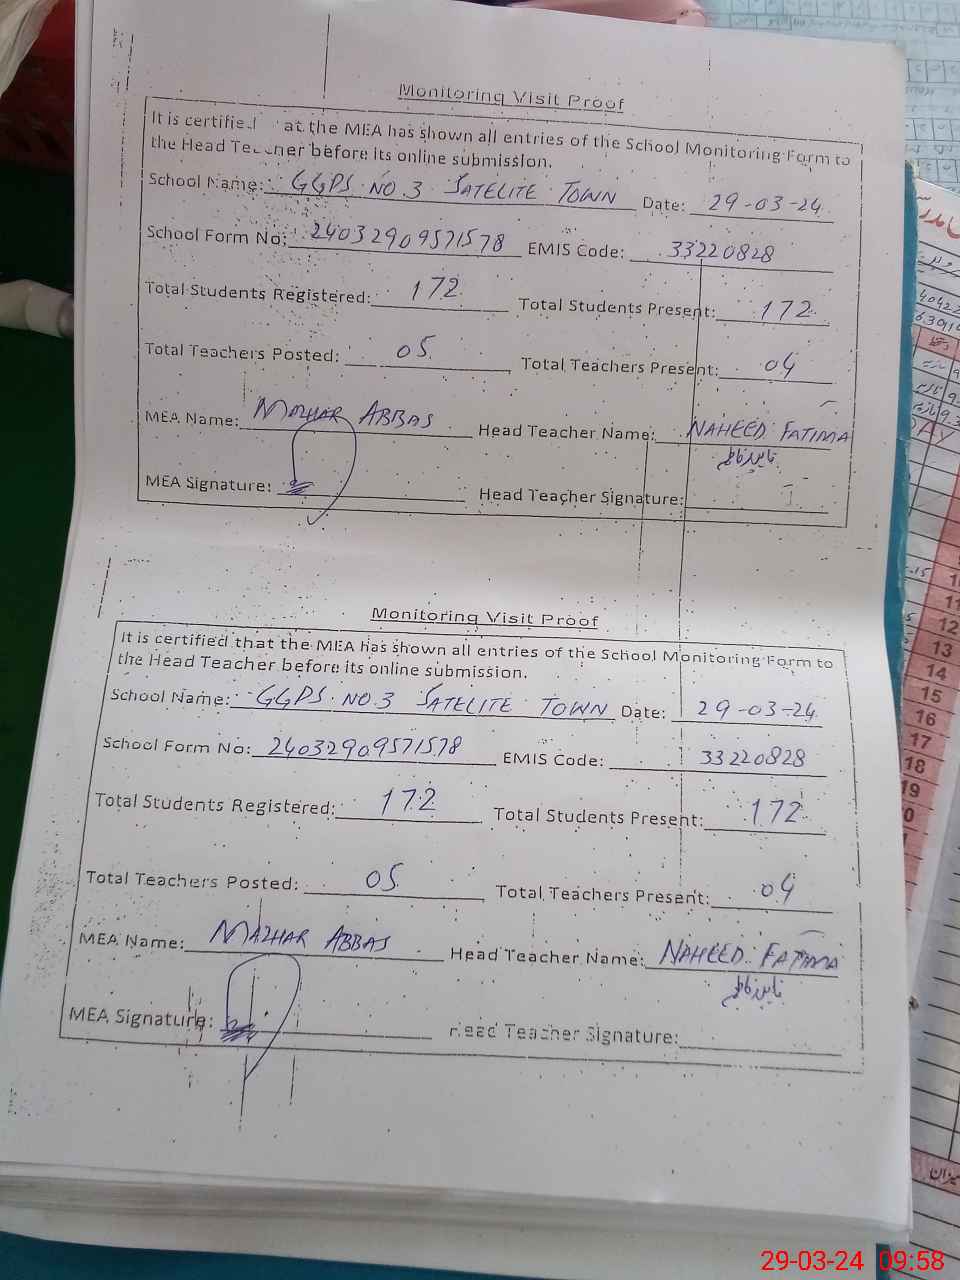 Monitoring Visit Proof
It is certified at the MEA has shown all entries of the School Monitoring Form to
the Head Teacher before its online submission.
School Name: GGPS NO.3 SATELITE TOWN Date: 29-03-24
School Form No: 24032909571578 EMIS Code: 33220828
Total Students Registered: 172 Total Students Present: 172
Total Teachers Posted: 05 Total Teachers Present: 04
MEA Name: MAZHAR ABBAS Head Teacher Name: NAHEED FATIMA
MEA Signature: Head Teacher Signature:
Monitoring Visit Proof
It is certified that the MEA has shown all entries of the School Monitoring Form to
the Head Teacher before its online submission.
School Name: GGPS NO.3 SATELITE TOWN Date: 29-03-24
School Form No: 24032909571578 EMIS Code: 33220828
Total Students Registered: 172 Total Students Present: 172
Total Teachers Posted: 05 Total Teachers Present: 04
MEA Name: MAZHAR ABBAS Head Teacher Name: NAHEED FATIMA
MEA Signature: Head Teacher Signature:
11
12
13
14
15
16
17
18
19
میزان
29-03-24 09:58